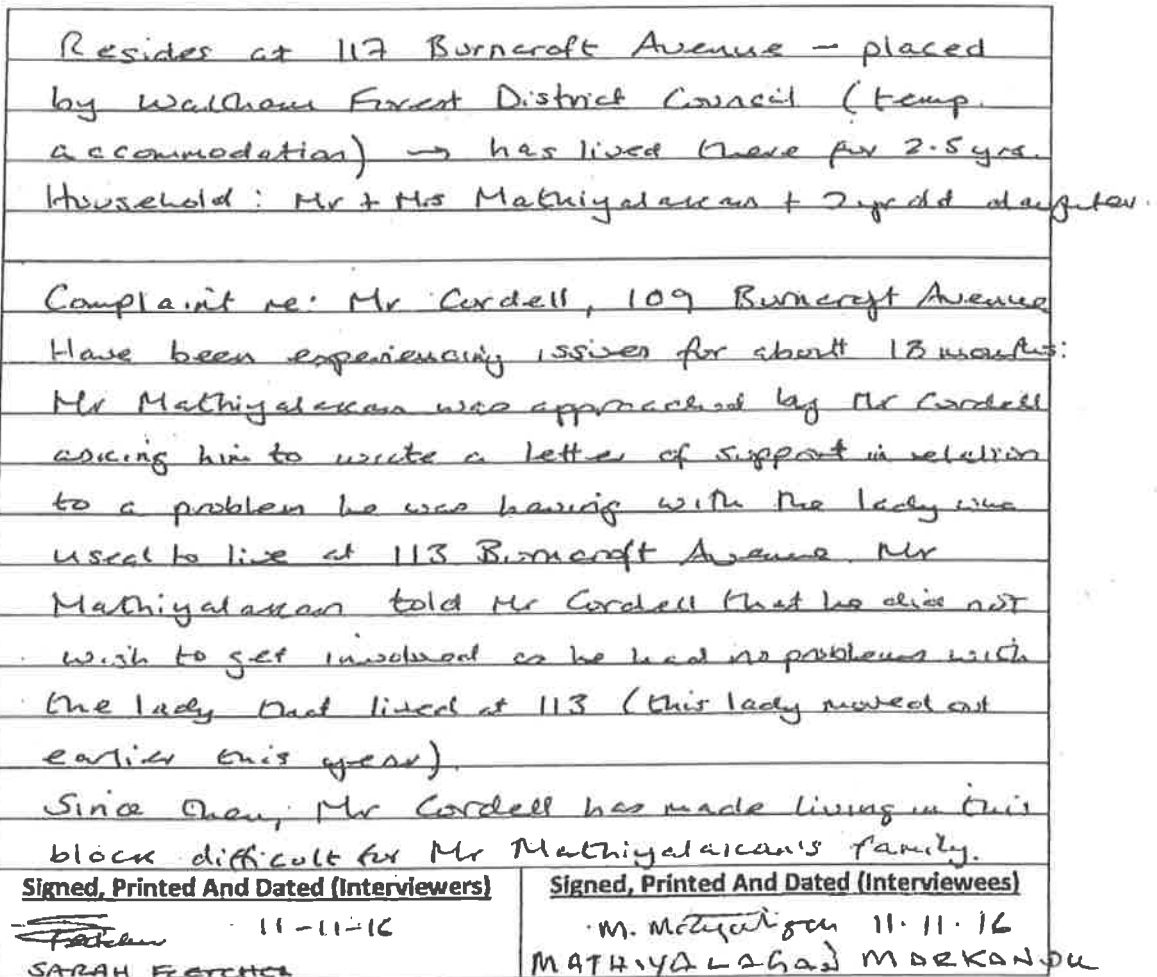 Resides at 117 Burncroft Avenue – placed
by Waltham Forest District Council (temp.
accommodation) → has lived there for 2.5 yrs.
Household: Mr + Mrs Mathiyalakan + 2 yr old daughter.
Complaint re: Mr Cordell, 109 Burncroft Avenue
Have been experiencing issues for about 18 months:
Mr Mathiyalakan was approached by Mr Cordell
asking him to write a letter of support in relation
to a problem he was having with the lady who
used to live at 113 Burncroft Avenue. Mr
Mathiyalakan told Mr Cordell that he did not
wish to get involved as he had no problems with
the lady that lived at 113 (this lady moved out
earlier this year).
Since then, Mr Cordell has made living in this
block difficult for Mr Mathiyalakan's family.
Signed, Printed And Dated (Interviewers)
Signed, Printed And Dated (Interviewees)
11-11-16
11.11.16
SARAH FLETCHER
MATHIYALAGAN MARKANDU